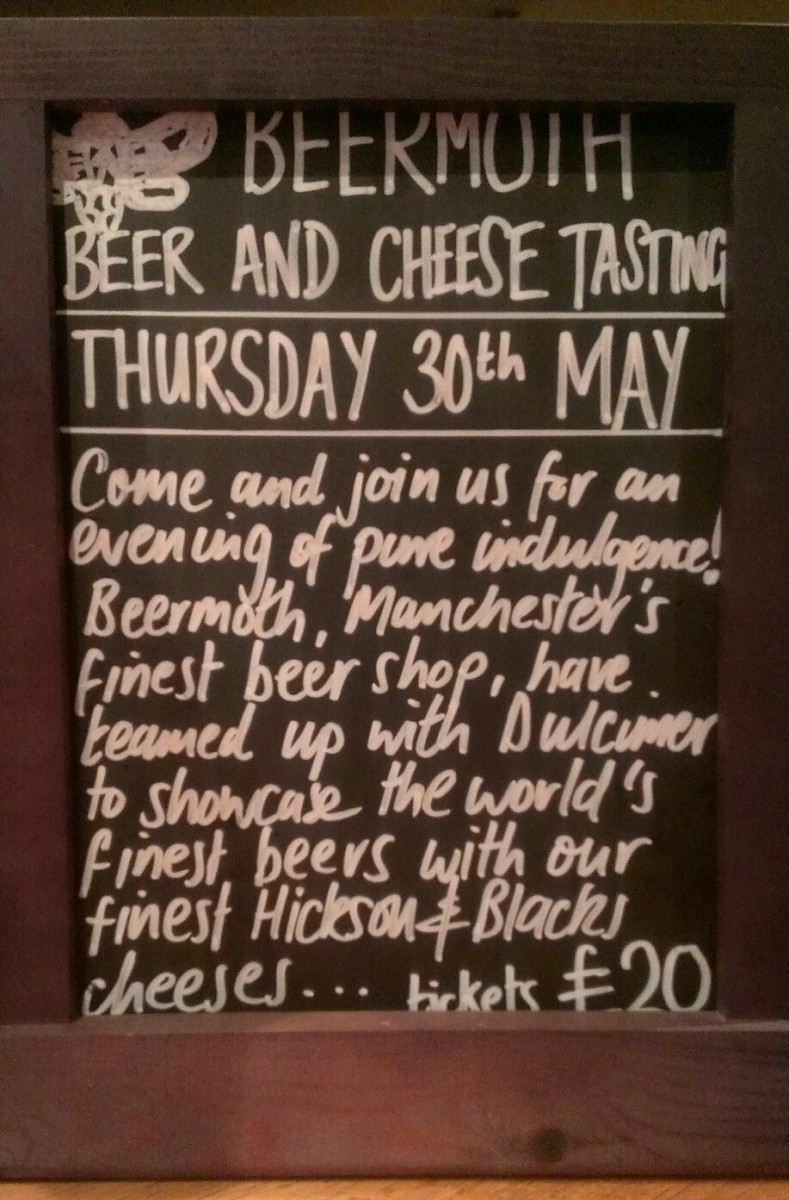 BEERMOTH
BEER AND CHEESE TASTING
THURSDAY 30th MAY
Come and join us for an
evening of pure indulgence!
Beermoth, Manchester's
finest beer shop, have
teamed up with Dulcimer
to showcase the world's
finest beers with our
finest Hickson & Blacks
cheeses... tickets £20